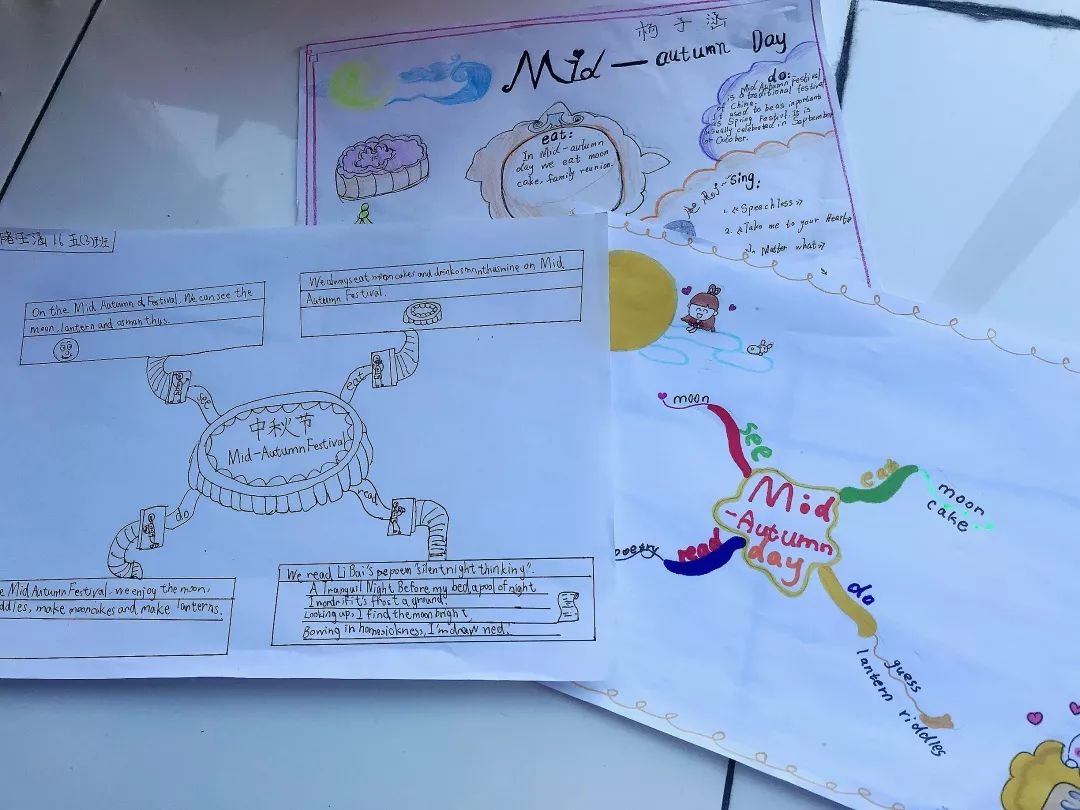 杨子涵
Mid-autumn Day
eat:
In Mid-autumn
day we eat moon
cake, family reunion.
do:
Mid Autumn Festival
is a traditional festival
of China.
It used to be as important
as Spring Festivl. It is
usually celebrated in September
or October.
Sing:
1. 《Speechless》
2. 《Take me to your Heart》
Matter what》
16 五(3)班
On the Mid Autumn Festival. We can see the
moon, lantern and osmanthus.
We always eat mooncakes and drink osmanthus wine on Mid
Autumn Festival.
see
eat
中秋节
Mid-Autumn Festival
do
read
Mid Autumn Festival, we enjoy the moon,
ddles, make mooncakes and make lanterns.
We read Li Bai's pepoem "silent night thinking".
A Tranquil Night Before my bed a pool of night
Looking up, I find the moon bright
Bowing in homesickness, I'm draw ned.
moon
see
eat
moon
cake
Mid
-Autumn
day
poetry
read
do
guess
lantern riddles